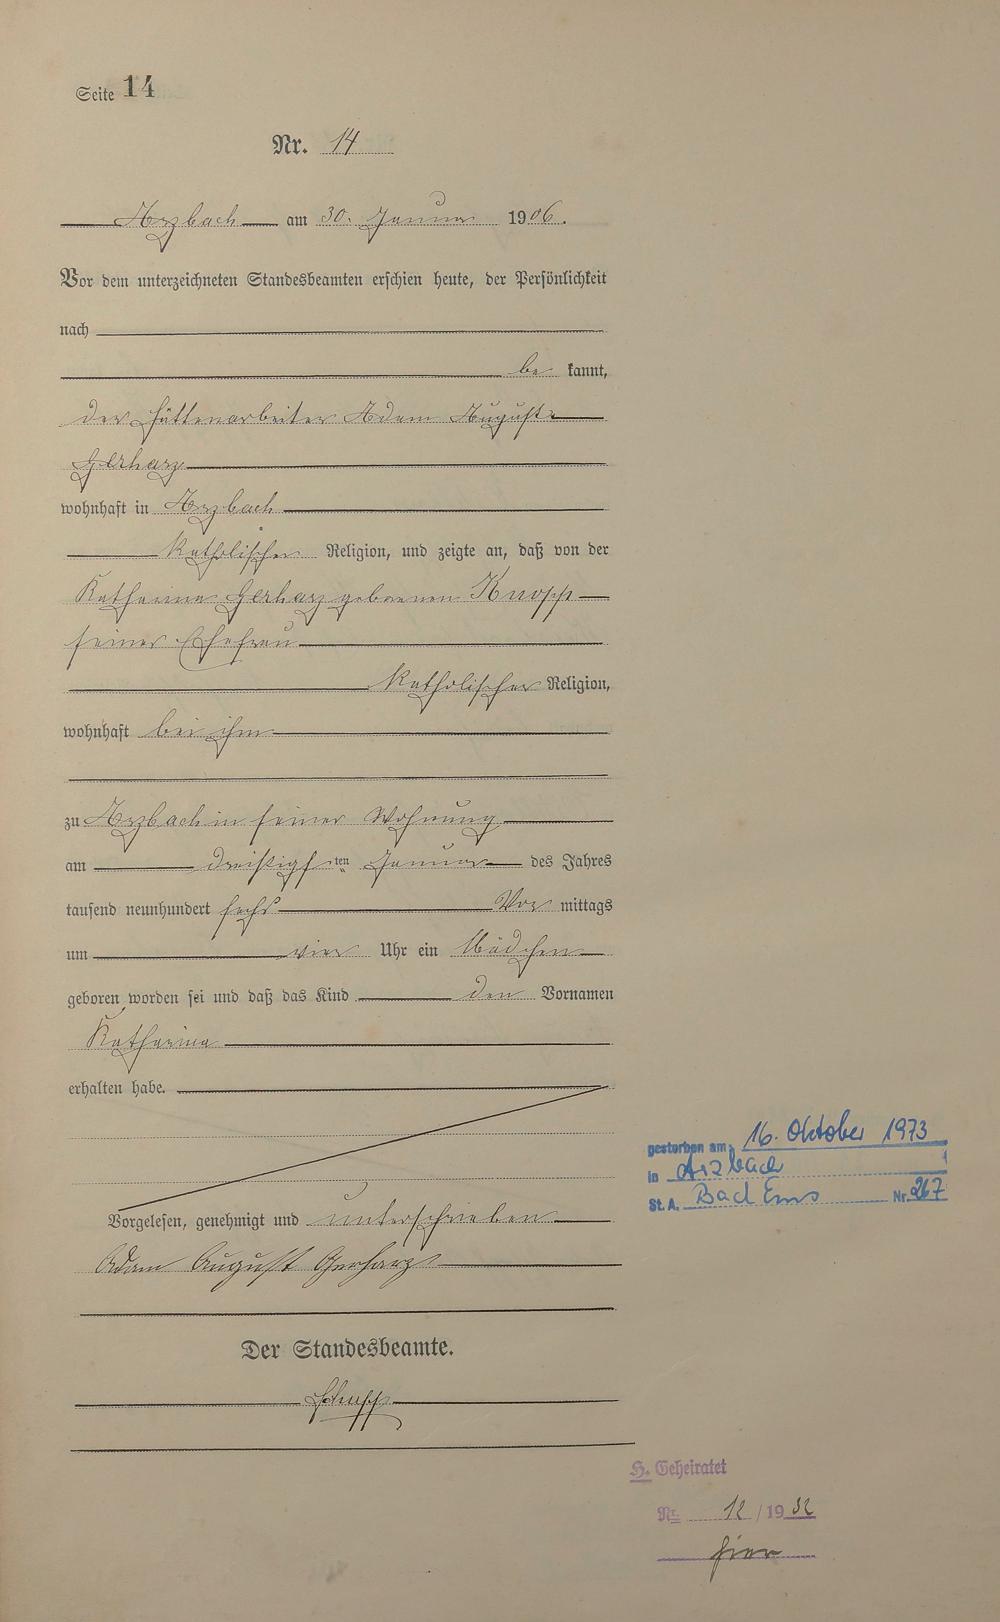 Seite 14
Nr. 14
Arzbach am 30. Januar 1906.
Vor dem unterzeichneten Standesbeamten erschien heute, der Persönlichkeit
nach
be kannt,
der Hüttenarbeiter Adam August
Gerharz
wohnhaft in Arzbach
katholischer Religion, und zeigte an, daß von der
Katharina Gerharz geborenen Knopp
seiner Ehefrau
katholischer Religion,
wohnhaft bei ihm
zu Arzbach in seiner Wohnung
am dreißigsten Januar des Jahres
tausend neunhundert sechs Vor mittags
um vier Uhr ein Mädchen
geboren worden sei und daß das Kind den Vornamen
Katharina
erhalten habe.
gestorben am 16. Oktober 1973
in Arzbach
St. A. Bad Ems Nr. 267
Vorgelesen, genehmigt und unterschrieben
Adam August Gerharz
Der Standesbeamte.
H. Geheiratet
Nr. 12 / 1932
hier